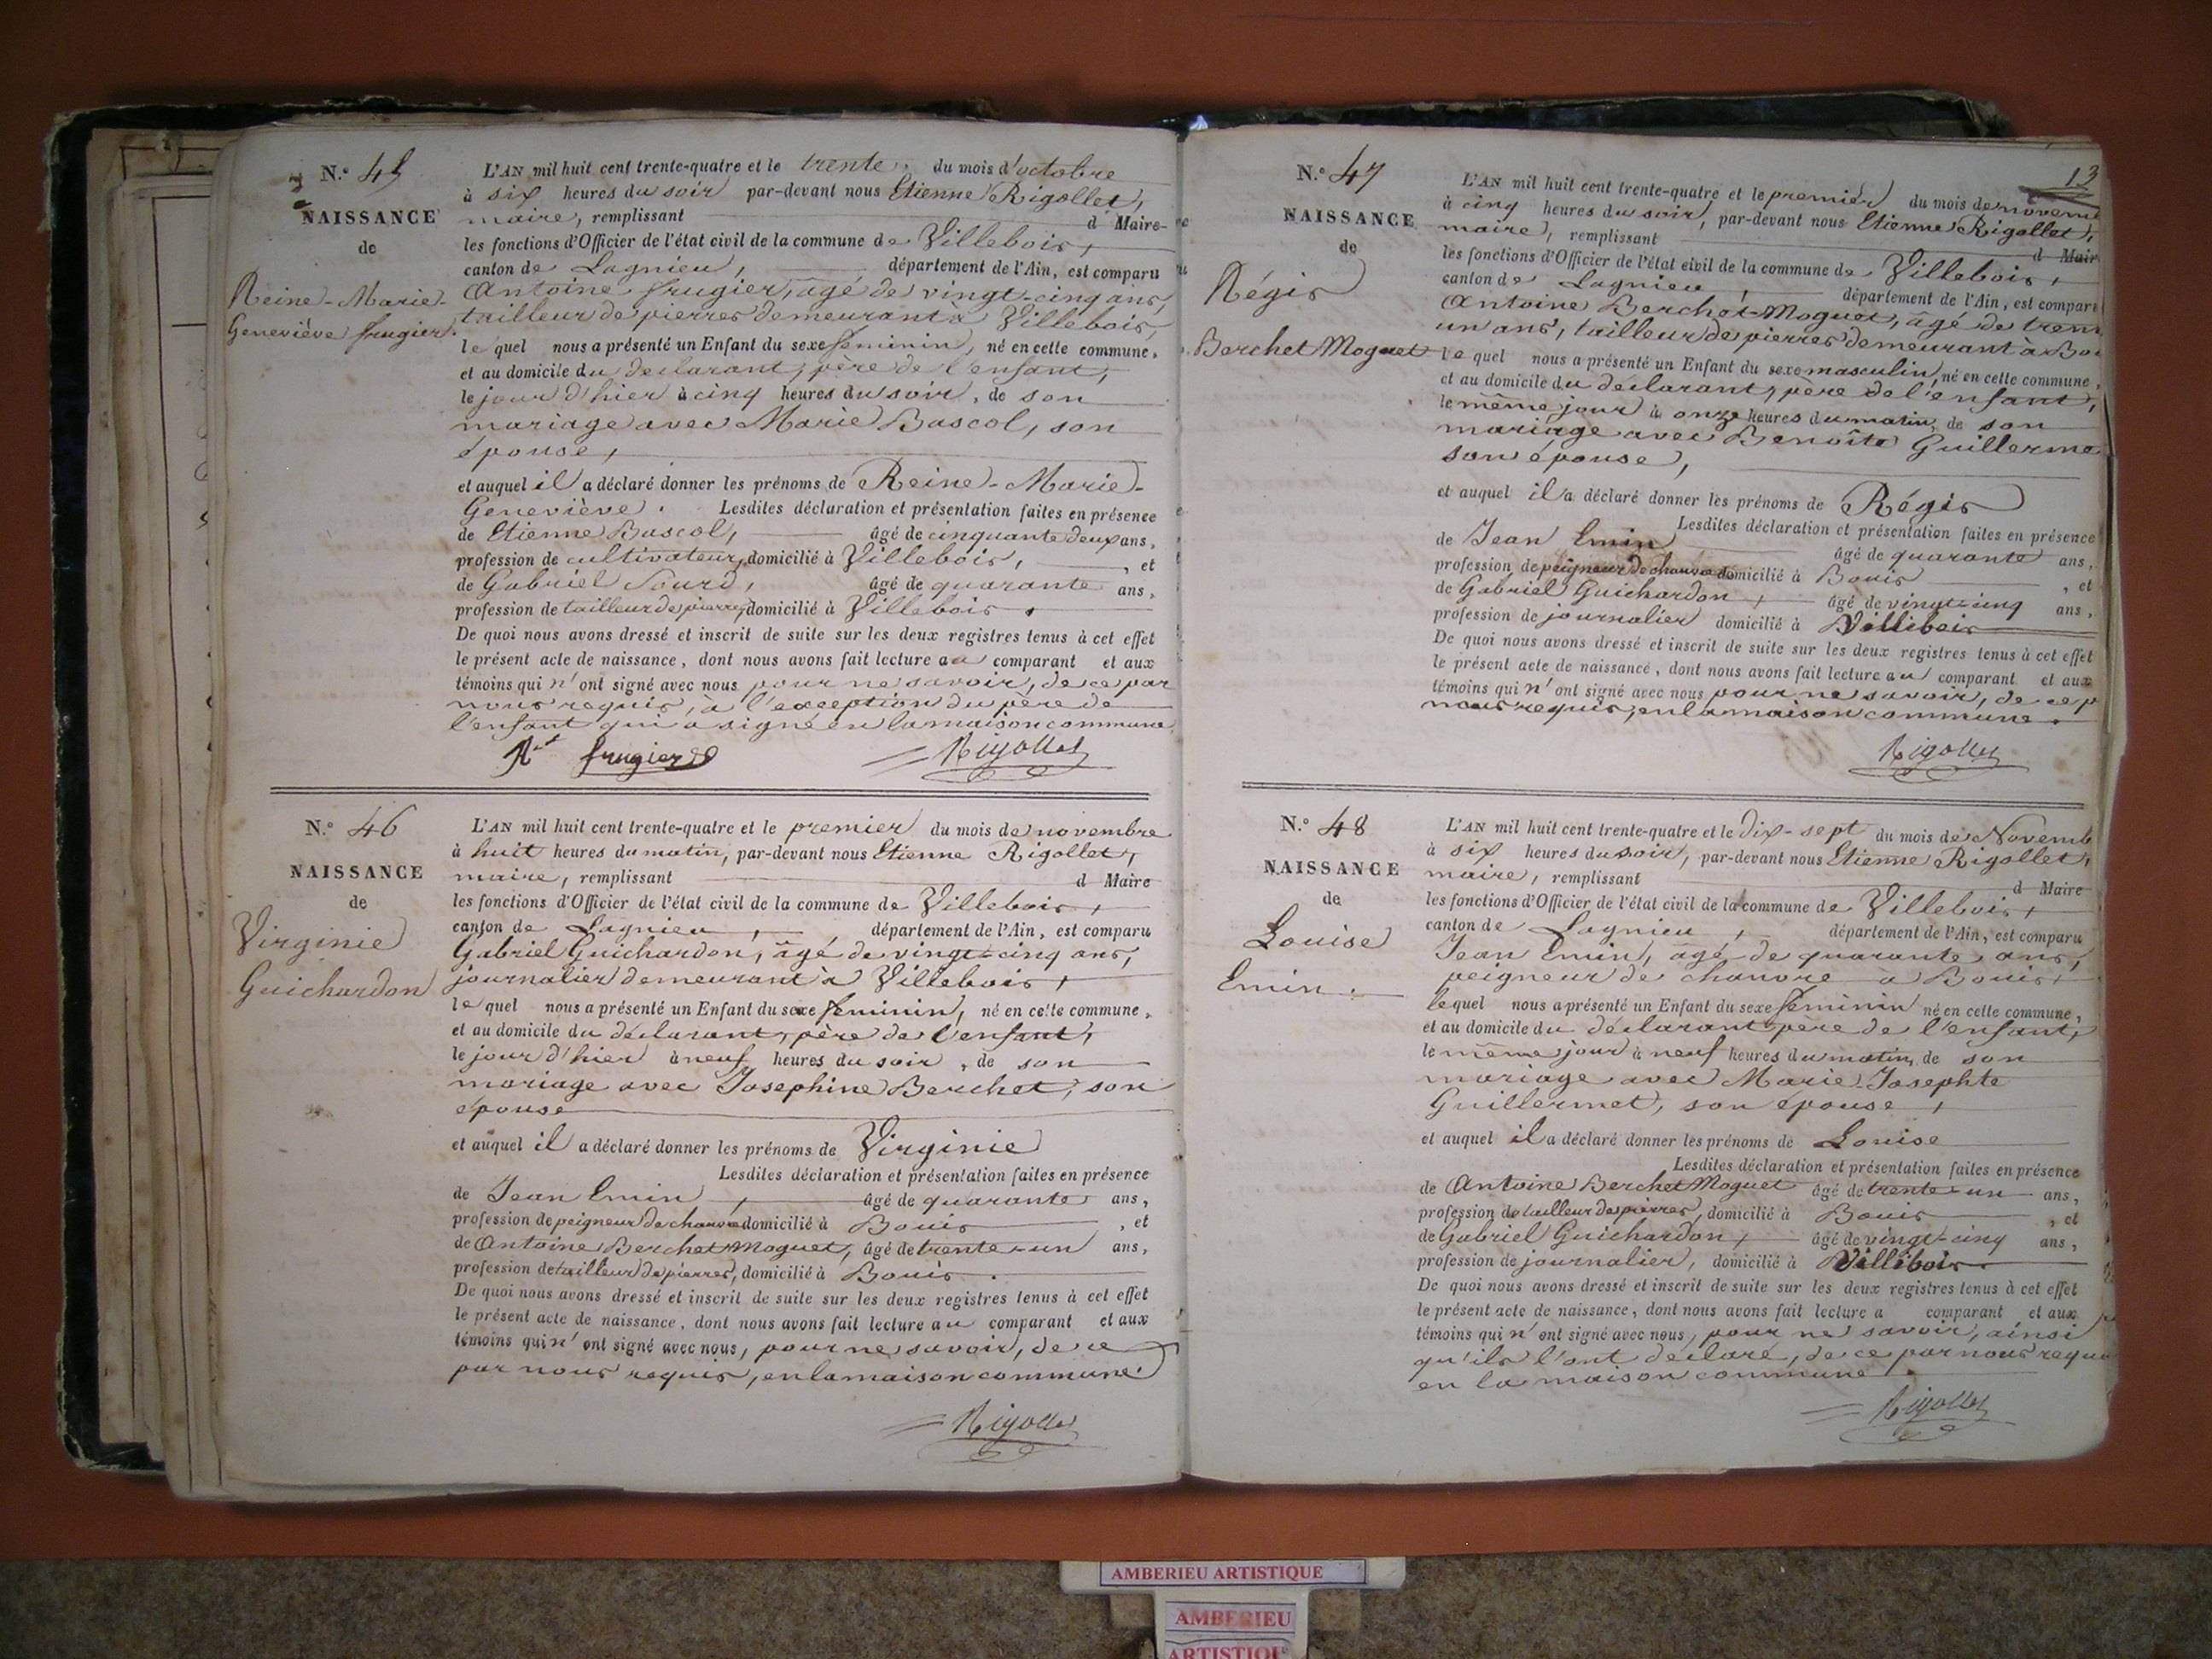 N.° 45
NAISSANCE
de
Reine-Marie-
Geneviève frugier.
L'AN mil huit cent trente-quatre et le trente du mois d'octobre
à six heures du soir par-devant nous Etienne Rigollet,
maire, remplissant d Maire
les fonctions d'Officier de l'état civil de la commune de Villebois,
canton de Lagnieu, département de l'Ain, est comparu
Antoine frugier, âgé de vingt-cinq ans,
tailleur de pierres demeurant à Villebois,
lequel nous a présenté un Enfant du sexe féminin, né en cette commune,
et au domicile du déclarant, père de l'enfant,
le jour d'hier à cinq heures du soir, de son
mariage avec Marie Bascol, son
épouse,
et auquel il a déclaré donner les prénoms de Reine-Marie-
Geneviève. Lesdites déclaration et présentation faites en présence
de Etienne Bascol, âgé de cinquante deux ans,
profession de cultivateur, domicilié à Villebois, , et
de Gabriel Sourd, âgé de quarante ans,
profession de tailleur de pierres domicilié à Villebois.
De quoi nous avons dressé et inscrit de suite sur les deux registres tenus à cet effet
le présent acte de naissance, dont nous avons fait lecture au comparant et aux
témoins qui n'ont signé avec nous pour ne savoir, de ce par
nous requis, à l'exception du père de
l'enfant qui a signé en la maison commune
frugier Rigollet
N.° 46
NAISSANCE
de
Virginie
Guichardon
L'AN mil huit cent trente-quatre et le premier du mois de novembre
à huit heures du matin, par-devant nous Etienne Rigollet,
maire, remplissant d Maire
les fonctions d'Officier de l'état civil de la commune de Villebois,
canton de Lagnieu, département de l'Ain, est comparu
Gabriel Guichardon, âgé de vingt-cinq ans,
journalier demeurant à Villebois,
lequel nous a présenté un Enfant du sexe féminin, né en cette commune,
et au domicile du déclarant, père de l'enfant,
le jour d'hier à neuf heures du soir, de son
mariage avec Josephine Berchet, son
épouse
et auquel il a déclaré donner les prénoms de Virginie
Lesdites déclaration et présentation faites en présence
de Jean Emin, âgé de quarante ans,
profession de peigneur de chanvre domicilié à Bouis , et
de Antoine Berchet Moguet, âgé de trente-un ans,
profession de tailleur de pierres, domicilié à Bouis.
De quoi nous avons dressé et inscrit de suite sur les deux registres tenus à cet effet
le présent acte de naissance, dont nous avons fait lecture au comparant et aux
témoins qui n'ont signé avec nous, pour ne savoir, de ce
par nous requis, en la maison commune.
Rigollet
13
N.° 47
NAISSANCE
de
Régis
Berchet Moguet
L'AN mil huit cent trente-quatre et le premier du mois de novem
à cinq heures du soir, par-devant nous Etienne Rigollet,
maire, remplissant d Mair
les fonctions d'Officier de l'état civil de la commune de Villebois,
canton de Lagnieu, département de l'Ain, est compar
Antoine Berchet-Moguet, âgé de tren
un ans, tailleur de pierres demeurant à Bo
lequel nous a présenté un Enfant du sexe masculin, né en cette commune,
et au domicile du déclarant, père de l'enfant,
le même jour à onze heures du matin, de son
mariage avec Benoîte Guillerme
son épouse,
et auquel il a déclaré donner les prénoms de Régis
Lesdites déclaration et présentation faites en présence
de Jean Emin âgé de quarante ans,
profession de peigneur de chanvre domicilié à Bouis , et
de Gabriel Guichardon, âgé de vingt-cinq ans,
profession de journalier domicilié à Villebois
De quoi nous avons dressé et inscrit de suite sur les deux registres tenus à cet effet
le présent acte de naissance, dont nous avons fait lecture au comparant et aux
témoins qui n'ont signé avec nous pour ne savoir, de ce p
nous requis, en la maison commune.
Rigollet
N.° 48
NAISSANCE
de
Louise
Emin.
L'AN mil huit cent trente-quatre et le Dix-sept du mois de Novemb
à six heures du soir, par-devant nous Etienne Rigollet,
maire, remplissant d Maire
les fonctions d'Officier de l'état civil de la commune de Villebois,
canton de Lagnieu, département de l'Ain, est comparu
Jean Emin, âgé de quarante ans,
peigneur de chanvre à Bouis,
lequel nous a présenté un Enfant du sexe féminin né en cette commune,
et au domicile du déclarant, père de l'enfant,
le même jour à neuf heures du matin, de son
mariage avec Marie-Josephte
Guillermet, son épouse,
et auquel il a déclaré donner les prénoms de Louise
Lesdites déclaration et présentation faites en présence
de Antoine Berchet Moguet âgé de trente-un ans,
profession de tailleur de pierres, domicilié à Bouis , et
de Gabriel Guichardon, âgé de vingt-cinq ans,
profession de journalier, domicilié à Villebois.
De quoi nous avons dressé et inscrit de suite sur les deux registres tenus à cet effet
le présent acte de naissance, dont nous avons fait lecture a comparant et aux
témoins qui n'ont signé avec nous, pour ne savoir, ainsi
qu'ils l'ont déclaré, de ce par nous requ
en la maison commune.
Rigollet
AMBERIEU ARTISTIQUE
AMBERIEU
ARTISTIQU